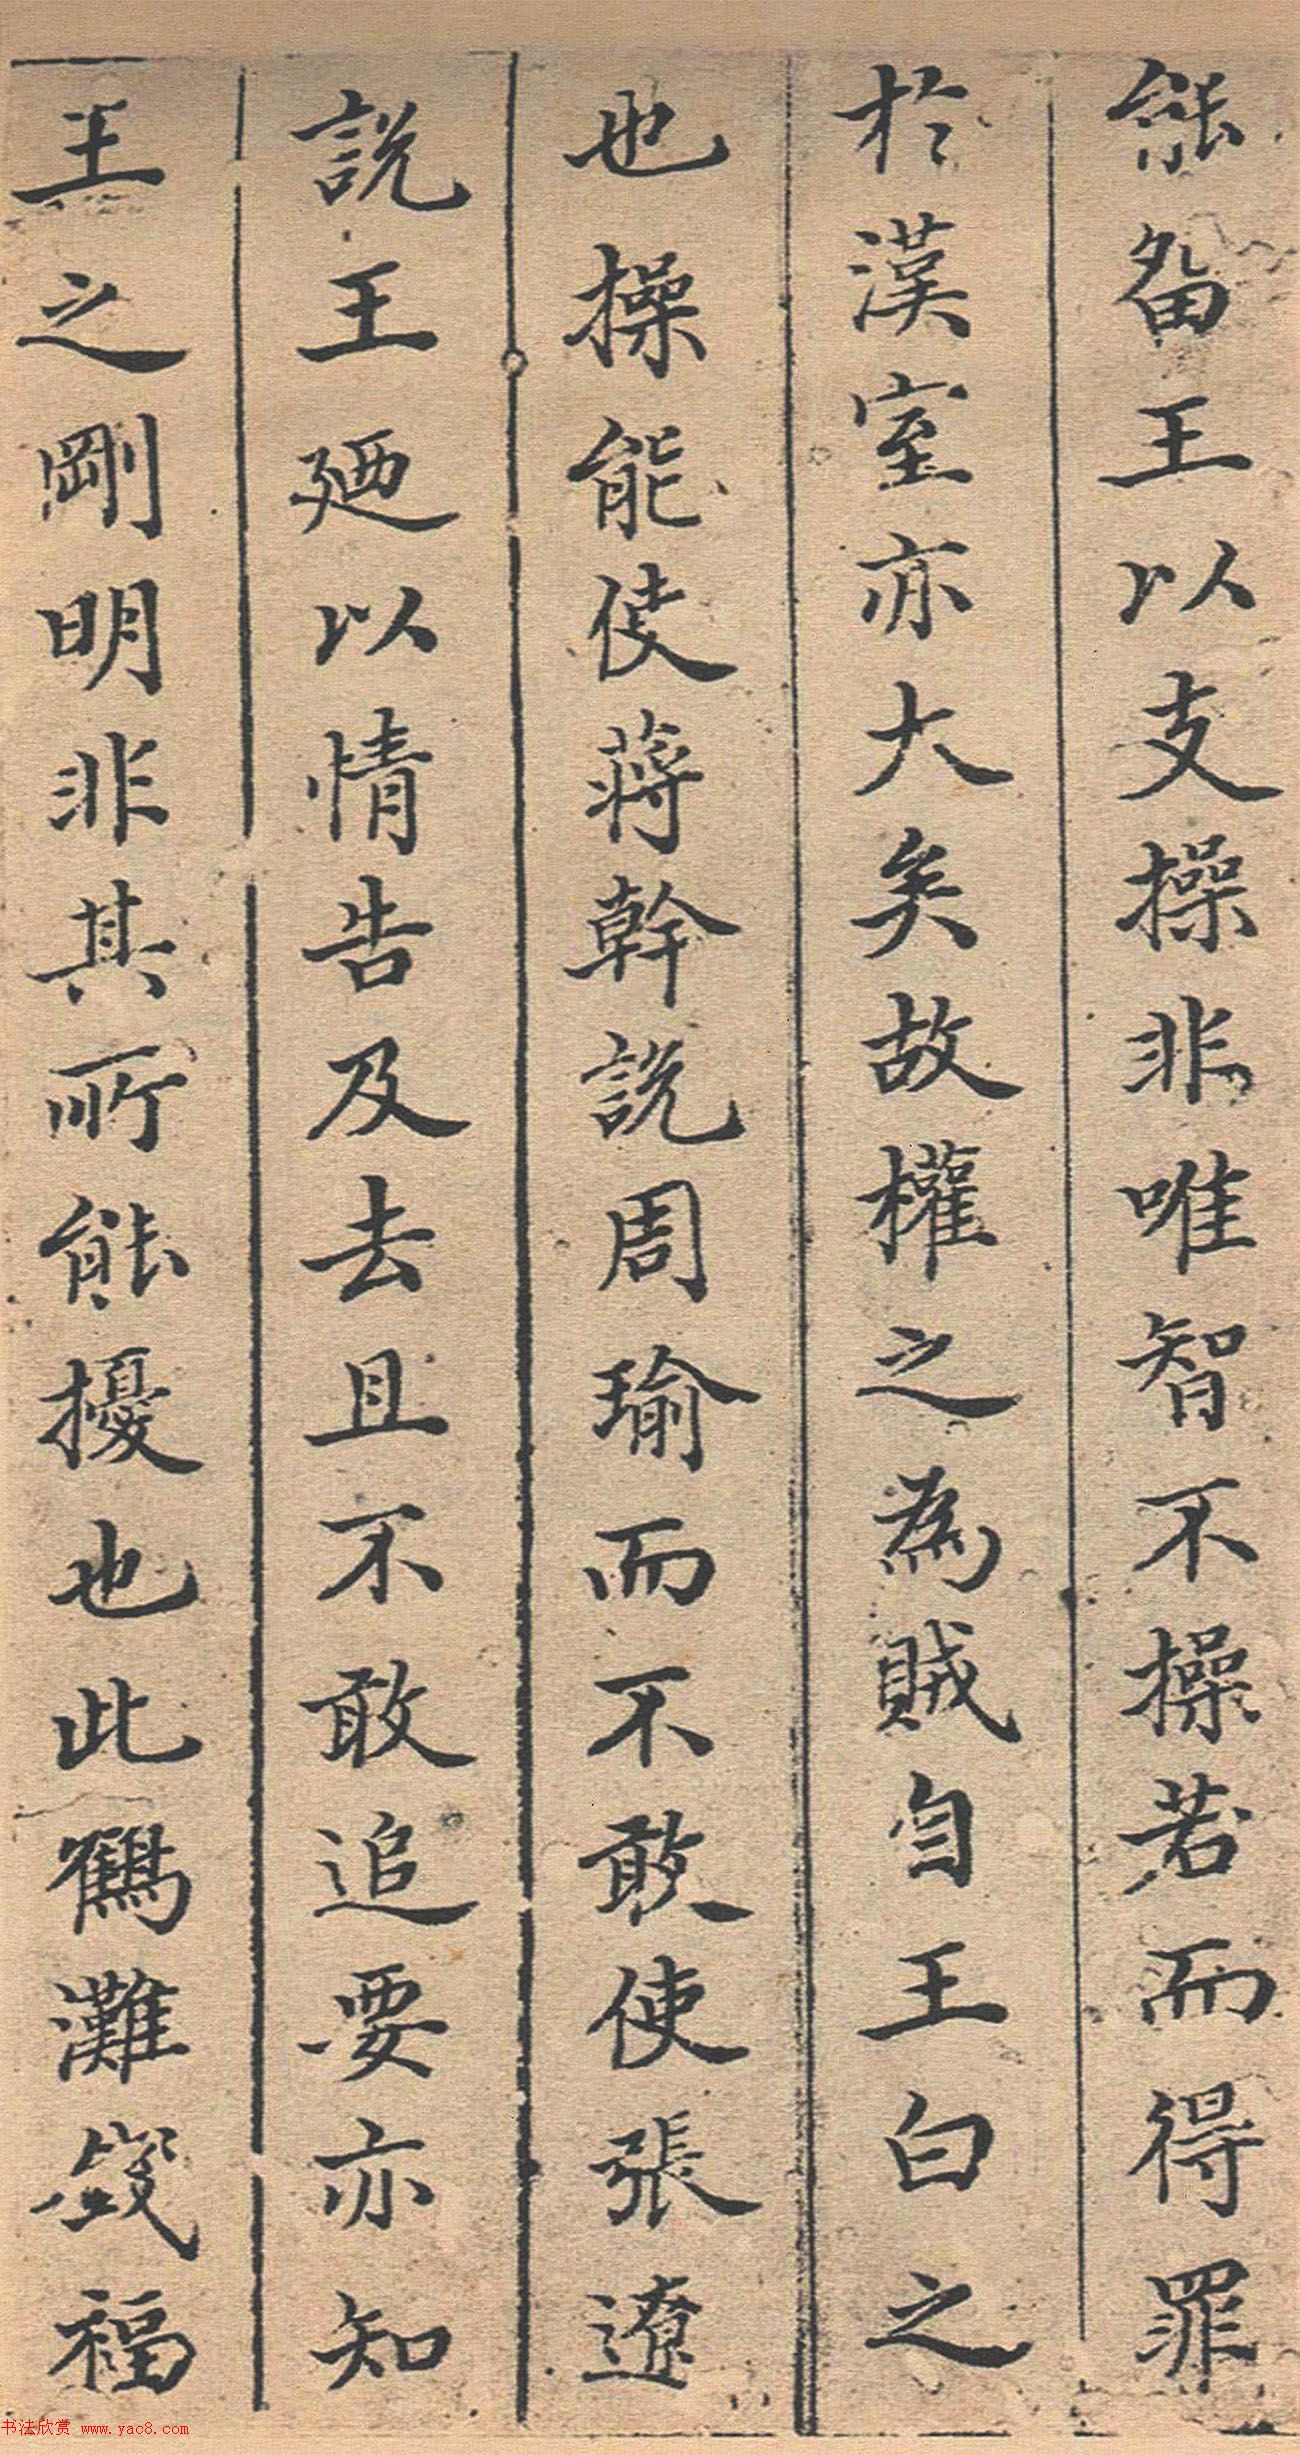 能畱王以支操非唯智不操若而得罪
於漢室亦大矣故權之為賊自王白之
也操能使蔣幹說周瑜而不敢使張遼
說王廼以情告及去且不敢追要亦知
王之剛明非其所能擾也此鶴灘錢福
书法欣赏 www.yac8.com